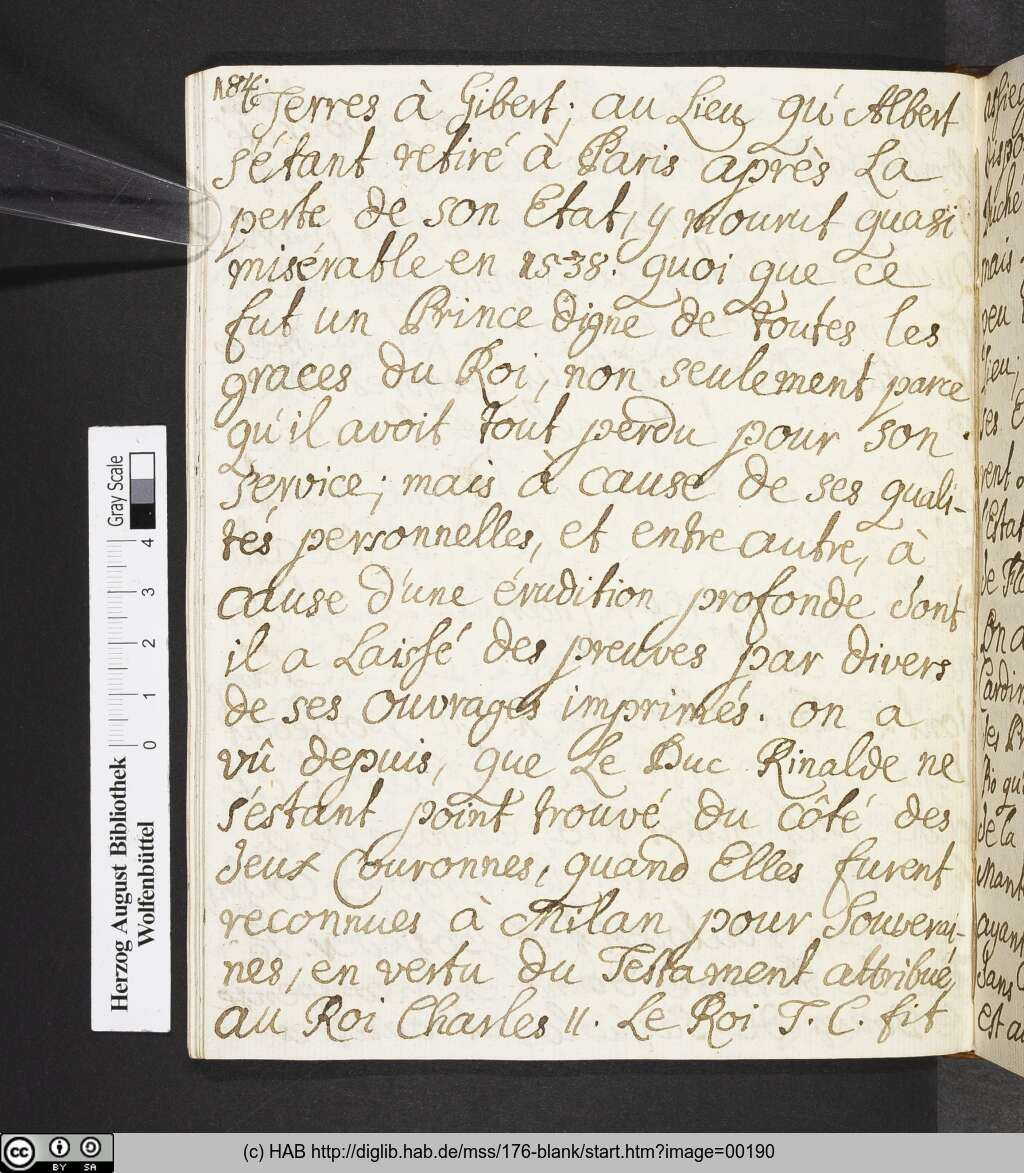 184.
Terres à Gibert; au Lieu qu'Albert
s'étant retiré à Paris après La
perte de son Etat, y mourut quasi
misérable en 1538. quoi que ce
fut un Prince digne de toutes les
graces du Roi, non seulement parce
qu'il avoit tout perdu pour son
service; mais à cause de ses quali-
tés personnelles, et entre autre, à
cause d'une érudition profonde dont
il a Laissé des preuves par divers
de ses Ouvrages imprimés. on a
vû depuis, que Le Duc Rinalde ne
s'estant point trouvé du côté des
deux Couronnes, quand Elles furent
reconnues à Milan pour Souverai-
nes, en vertu du Testament attribué,
au Roi Charles II. Le Roi T. C. fit
Gray Scale
4
3
2
1
0
Herzog August Bibliothek
Wolfenbüttel
cc BY SA
(c) HAB http://diglib.hab.de/mss/176-blank/start.htm?image=00190